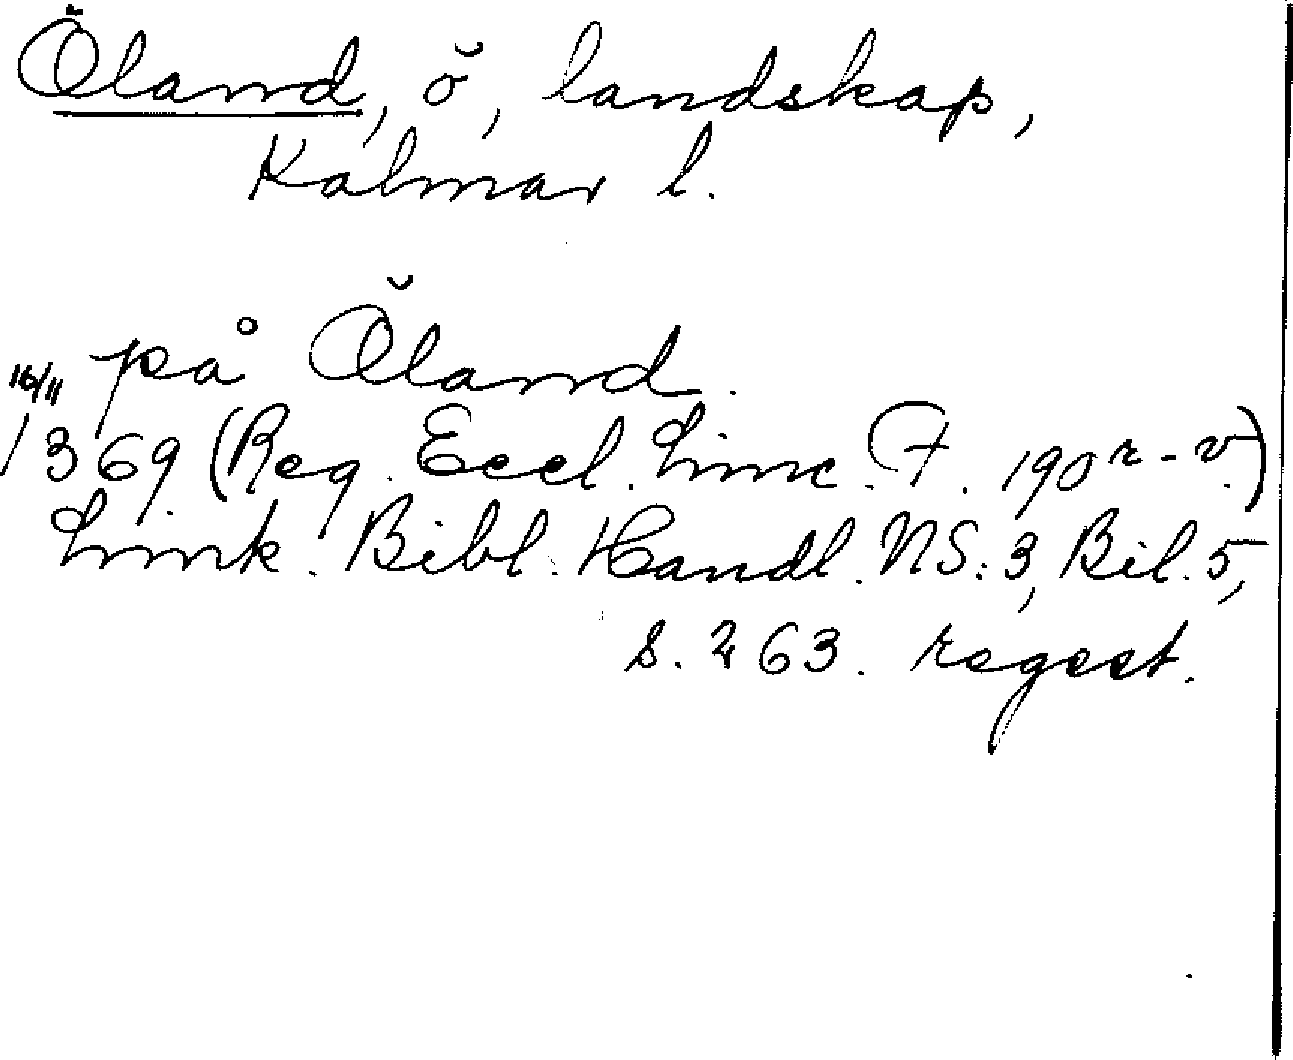 Öland, ö, landskap,
Kalmar l.
på Öland.
16/11
1369 (Reg. Eccl. Linc. F. 190 r-v.)
Link. Bibl. Handl. NS:3, Bil. 5,
s. 263. regest.